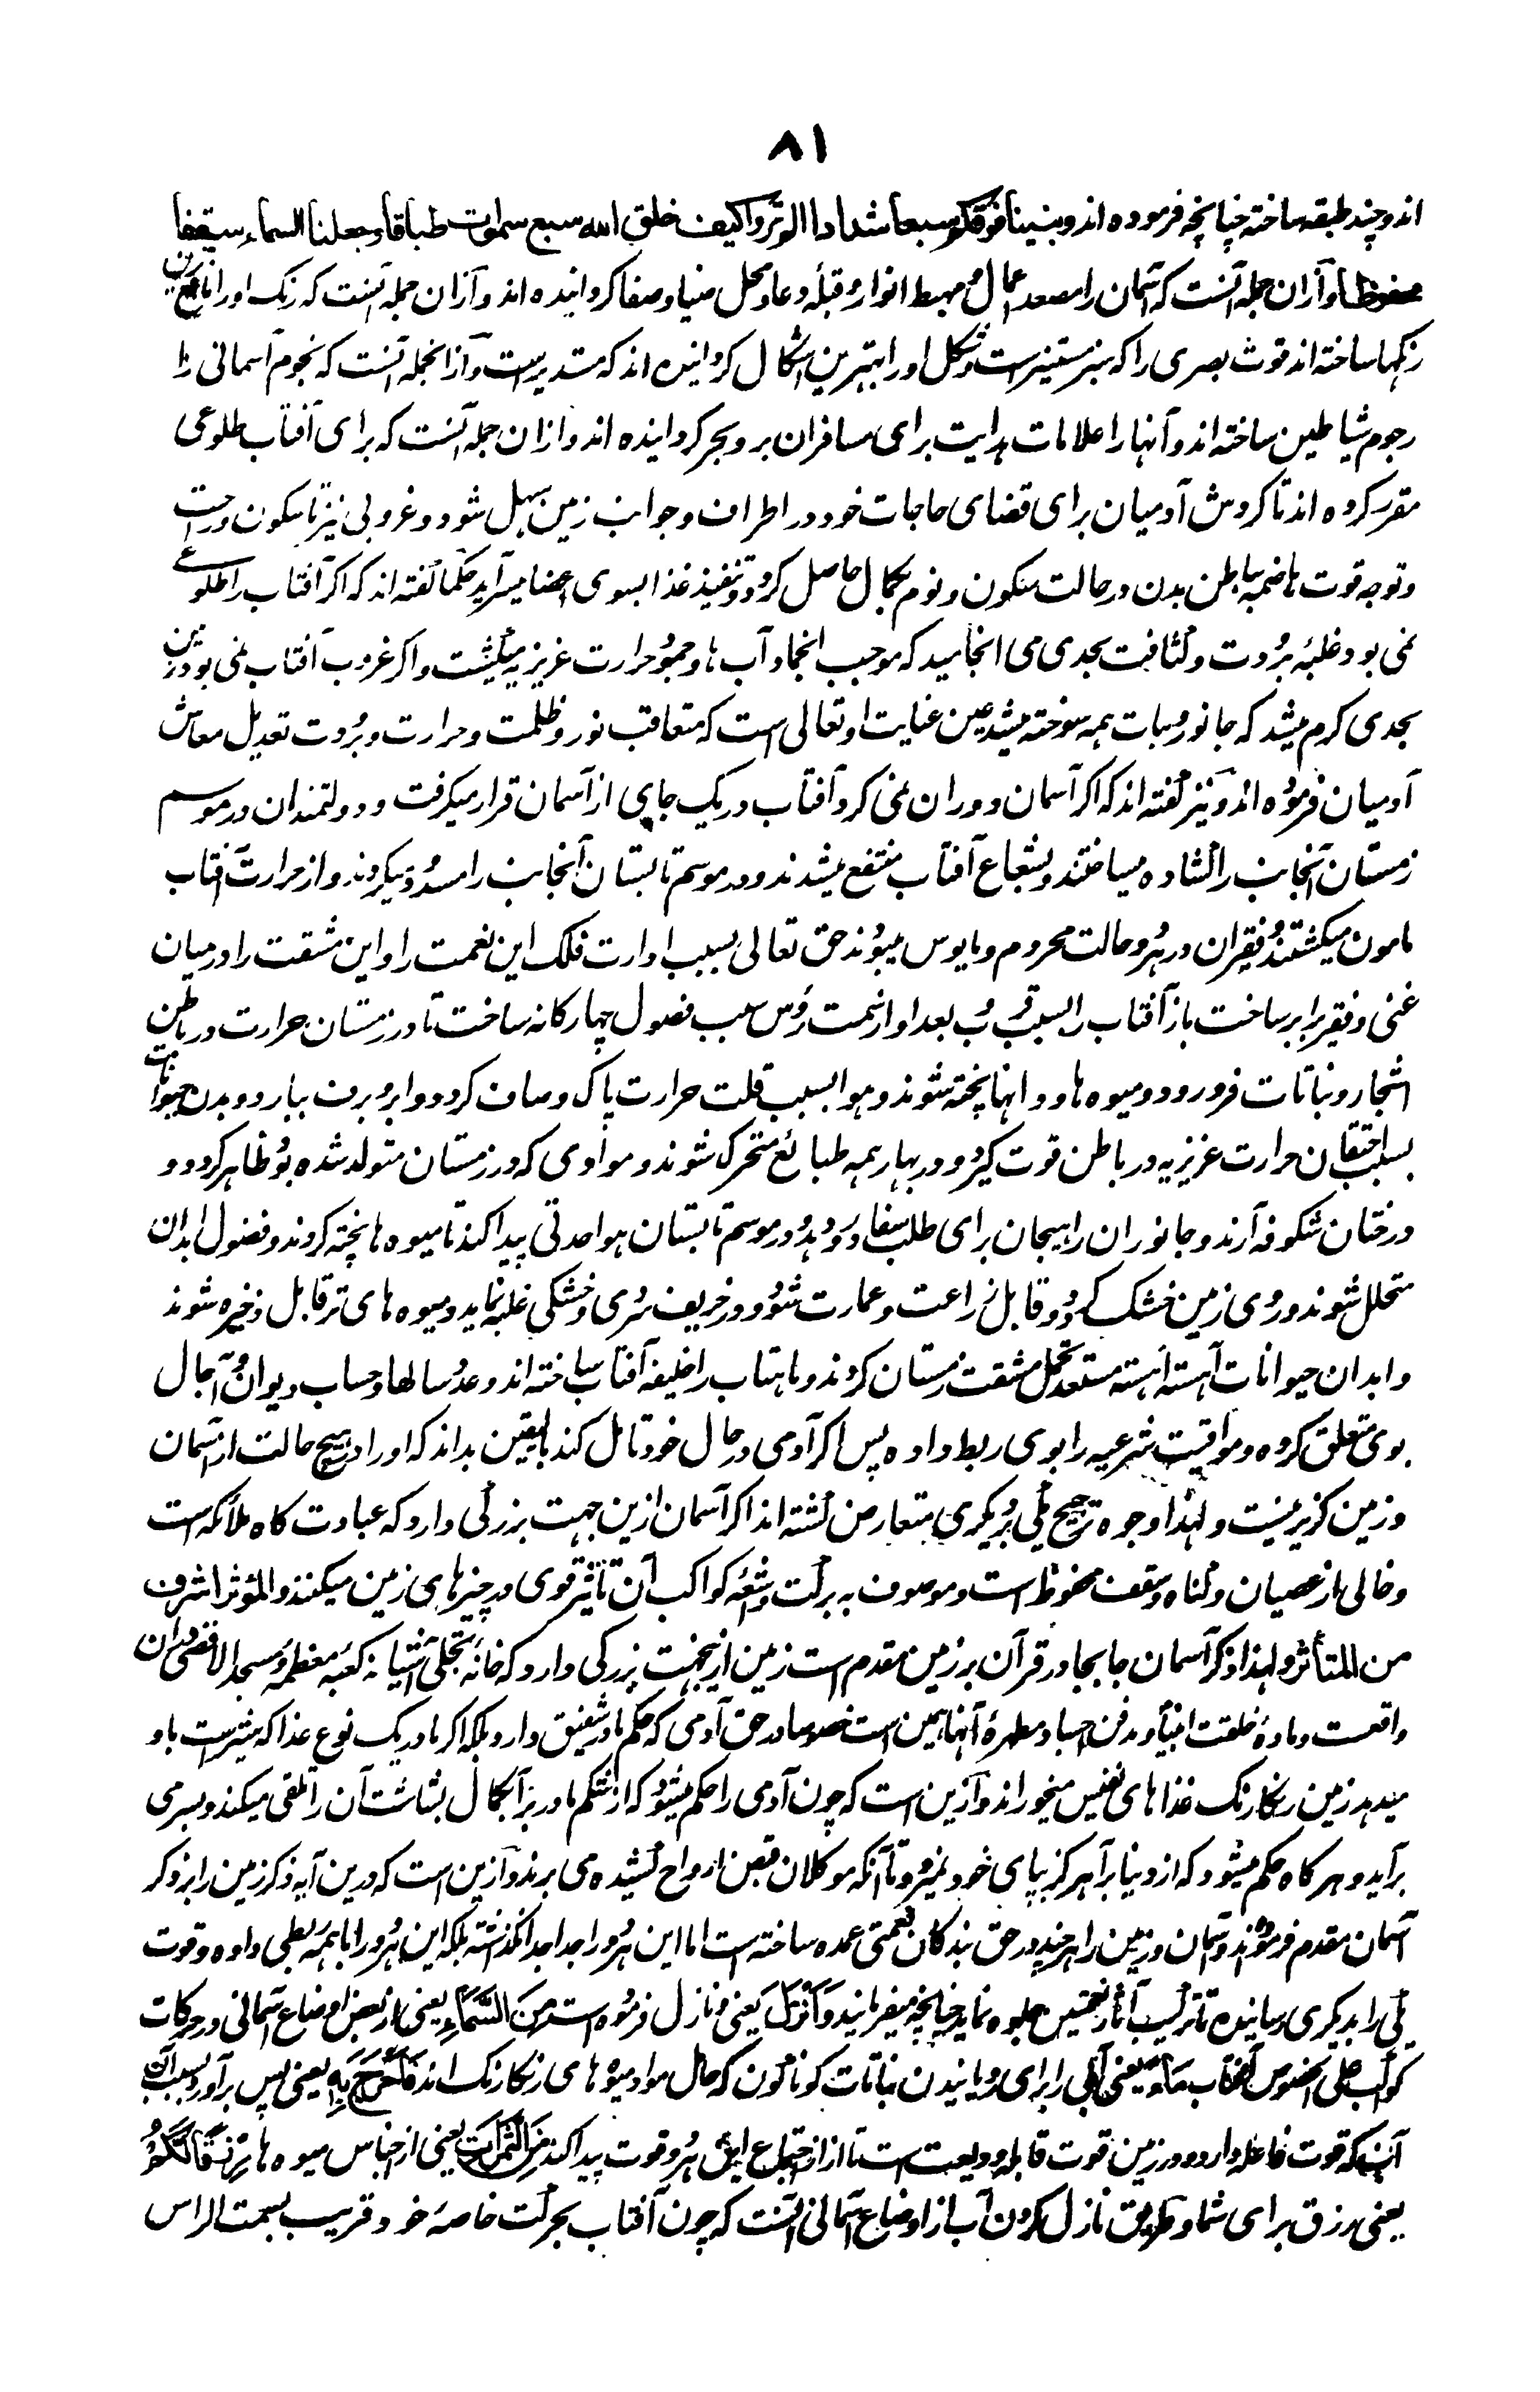 ۸۱
اند و چند طبقه ساخته چنانچه فرموده اند و بنینا فوقکم سبعا شدادا الم تروا کیف خلق الله سبع سموات طباقا و جعلنا السماء سقفا
محفوظا و ازان جمله آنست که آسمان را مصعد اعمال و مهبط انوار و قبلهٔ دعا و محل ضیا و صفا گردانیده اند و ازان جمله آنست که رنگ اورا نافع ترین
رنگها ساخته اند قوت بصری را که سبز مستنیرست و شکل اورا بهترین اشکال گردانیده اند که مستدیرست و ازانجمله آنست که نجوم آسمانی را
رجوم شیاطین ساخته اند و آنها را علامات هدایت برای مسافران بر و بحر گردانیده اند و ازان جمله آنست که برای آفتاب طلوعی
مقرر کرده اند تا گردش آدمیان برای قضای حاجات خود در اطراف و جوانب زمین سهل شود و غروبی نیز تا سکون و راحت
و توجه قوت هاضمه بباطن بدن در حالت سکون و نوم بکمال حاصل گردد و تنفیذ غذا بسوی اعضا میسر آید حکما گفته اند که اگر آفتاب را طلوعے
نمی بود غلبهٔ برودت و کثافت بحدی می انجامید که موجب انجماد آب ها و جمود حرارت غریزیه میگشت و اگر غروب آفتاب نمی بود زمین
بحدی گرم میشد که جانور و نبات همه سوخته میشد عین عنایت او تعالی است که متعاقب نور و ظلمت و حرارت و برودت تعدیل معاش
آدمیان فرموده اند و نیز گفته اند که اگر آسمان دوران نمی کرد آفتاب در یک جای از آسمان قرار میگرفت و دولتمندان در موسم
زمستان آنجانب را کشاده میساختند و بشعاع آفتاب منتفع میشدند و در موسم تابستان آنجانب را مسدود میکردند و از حرارت آفتاب
مامون میگشتند و فقیران در هر دو حالت محروم و مایوس میبودند حق تعالی بسبب ادارت فلک این نعمت را و این مشقت را درمیان
غنی و فقیر برابر ساخت باز آفتاب را بسبب قرب و بعد او از سمت رؤس سبب فصول چهارگانه ساخت تا در زمستان حرارت در باطن
اشجار و نباتات فرو رود و میوه ها و دانها پخته شوند و هوا بسبب قلت حرارت پاک و صاف گردد و ابر و برف ببارد و بدن حیوانات
بسبب احتقان حرارت غریزیه در باطن قوت گیرد و در بهار همه طبائع متحرک شوند و موادی که در زمستان متولد شده بود ظاهر گردد و
درختان شگوفه آرند و جانوران را هیجان برای طلب سفاد رو دهد و در موسم تابستان هوا حدتی پیدا کند تا میوه ها پخته گردند و فضول ابدان
متحلل شوند و روی زمین خشک گردد و قابل زراعت و عمارت شود و در خریف سردی و خشکی غلبه نماید و میوه های تر قابل ذخیره شوند
و ابدان حیوانات آهسته آهسته مستعد تحمل مشقت زمستان گردند و ماهتاب را خلیفه آفتاب ساخته اند و عدد سالها و حساب دیوان و آجال
بوی متعلق کرده و مواقیت شرعیه را بوی ربط داده پس اگر آدمی در حال خود تامل کند بالیقین بداند که اورا در هیچ حالت از آسمان
و زمین گزیر نیست و لهذا وجوه ترجیح یکی بر دیگری متعارض گشته اند اگر آسمان ازین جهت بزرگی دارد که عبادت گاه ملائکه است
و خالی از عصیان و گناه و سقف محفوظ است و موصوف به برکت و اشعهٔ کواکب آن تأثیر قوی در چیزهای زمین میکنند و المؤثر اشرف
من المتأثر و لهذا ذکر آسمان جابجا در قرآن بر زمین مقدم است زمین ازینجهت بزرگی دارد که خانهٔ تجلی آشیانه کعبهٔ معظمه و مسجد الاقصی دران
واقعست و مادهٔ خلقت انبیا و مدفن اجساد مطهرهٔ آنها همین است خصوصا در حق آدمی که حکم مادر شفیق دارد بلکه اگر مادر یک نوع غذا که شیرست باو
میدهد زمین رنگارنگ غذاهای نفیس میخوراند و ازین است که چون آدمی را حکم میشود که از شکم مادر برآ بکمال بشاشت آن را تلقی میکند و بسرمی
برآید و هر گاه حکم میشود که از دنیا برآ هرگز بپای خود نمیرود تا آنکه موکلان قبض ارواح کشیده می برند و ازین است که درین آیه ذکر زمین را بر ذکر
آسمان مقدم فرمودند و آسمان و زمین را هر چند در حق بندگان نعمتی عمده ساخته است اما این هر دو را جدا جدا نگذاشته بلکه این هر دو را باهم ربطی داده و قوت
یکی را بدیگری رسانیده تا ترکیب آثار نفیس جلوه نماید چنانچه میفرمایند وَاَنْزَلَ یعنی و نازل فرموده است مِنَ السَّمَآءِ یعنی از بعض اوضاع آسمانی و حرکات
کواکب علی الخصوص آفتاب مَآءً یعنی آبی را برای رویانیدن نباتات گوناگون که حامل مواد میوه های رنگارنگ اند فَاَخْرَجَ بِهٖ یعنی پس برآورد بسبب آن
آب که قوت فاعله دارد و در زمین قوت قابله ودیعت است تا از اجتماع این هر دو قوت پیدا کند مِنَ الثَّمَرَاتِ یعنی از اجناس میوه ها رِزْقًا لَّكُمْ
یعنی رزق برای شما و طریق نازل کردن آب از اوضاع آسمانی آنست که چون آفتاب بحرکت خاصهٔ خود قریب بسمت الراس